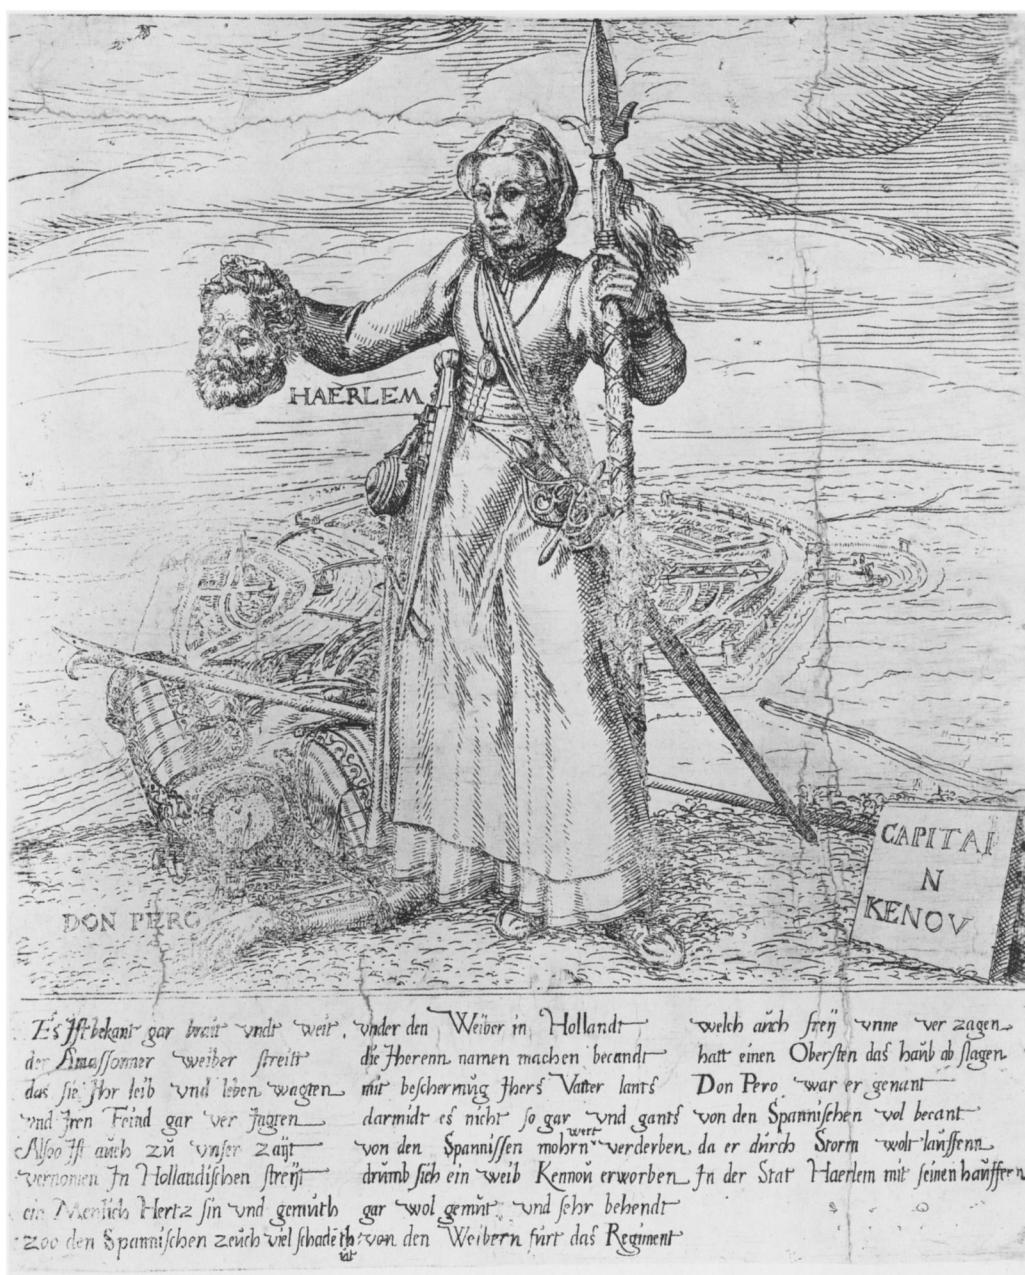 HAERLEM
DON PERO
CAPITAI
N
KENOV
Es Ist bekant gar brait vndt weit,
der Amassonner weiber streitt
das sie Jhr leib vnd leben wagten
vnd Jren Feind gar ver Jagten
Alsoo Ist auch zu vnser zaijt
vernomen In Hollandischen streijt
ein Menlich Hertz sin vnd gemuth
zoo den Spannischen zeuch viel schade thut
vnder den Weiber in Hollandt
die Jhorenn namen machen becandt
mit beschermug Jhers Vatter lants
darmidt es nicht so gar vnd gants
von den Spannissen mohrn wert verderben
drumb sich ein weib Kennou erworben
gar wol gemut vnd sehr behendt
von den Weibern furt das Regiment
welch auch freij vnne ver zagen
hatt einen Obersten das haub ab slagen
Don Pero war er genant
von den Spannischen vol becant
da er durch Storm wolt lauffenn
In der Stat Haerlem mit seinen hauffen